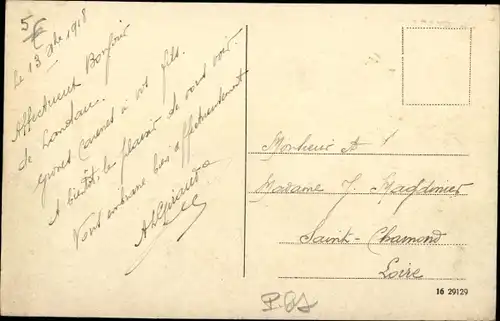 5 €
Le 13 Xbre 1918
Affectueux Bonjour
de Landau.
Grosses Caresses à vos fils.
A bientôt, le plaisir de vous voir.
Vous embrasse bien affectueusement
Monsieur &
Madame J. Magdinier
Saint-Chamond
Loire
16 29129